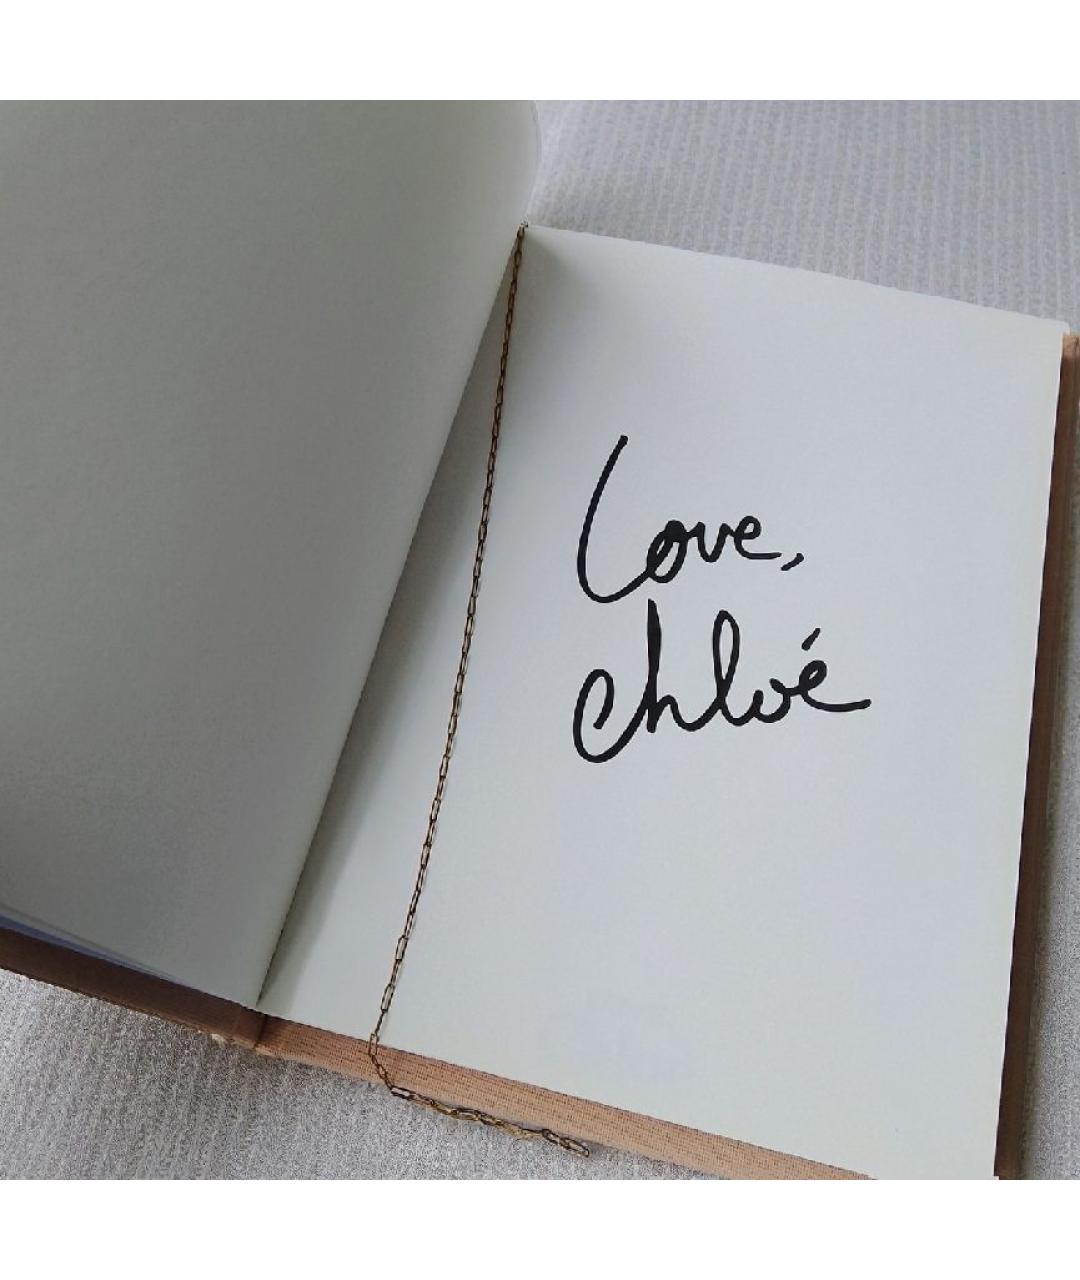 Love,
Chloé